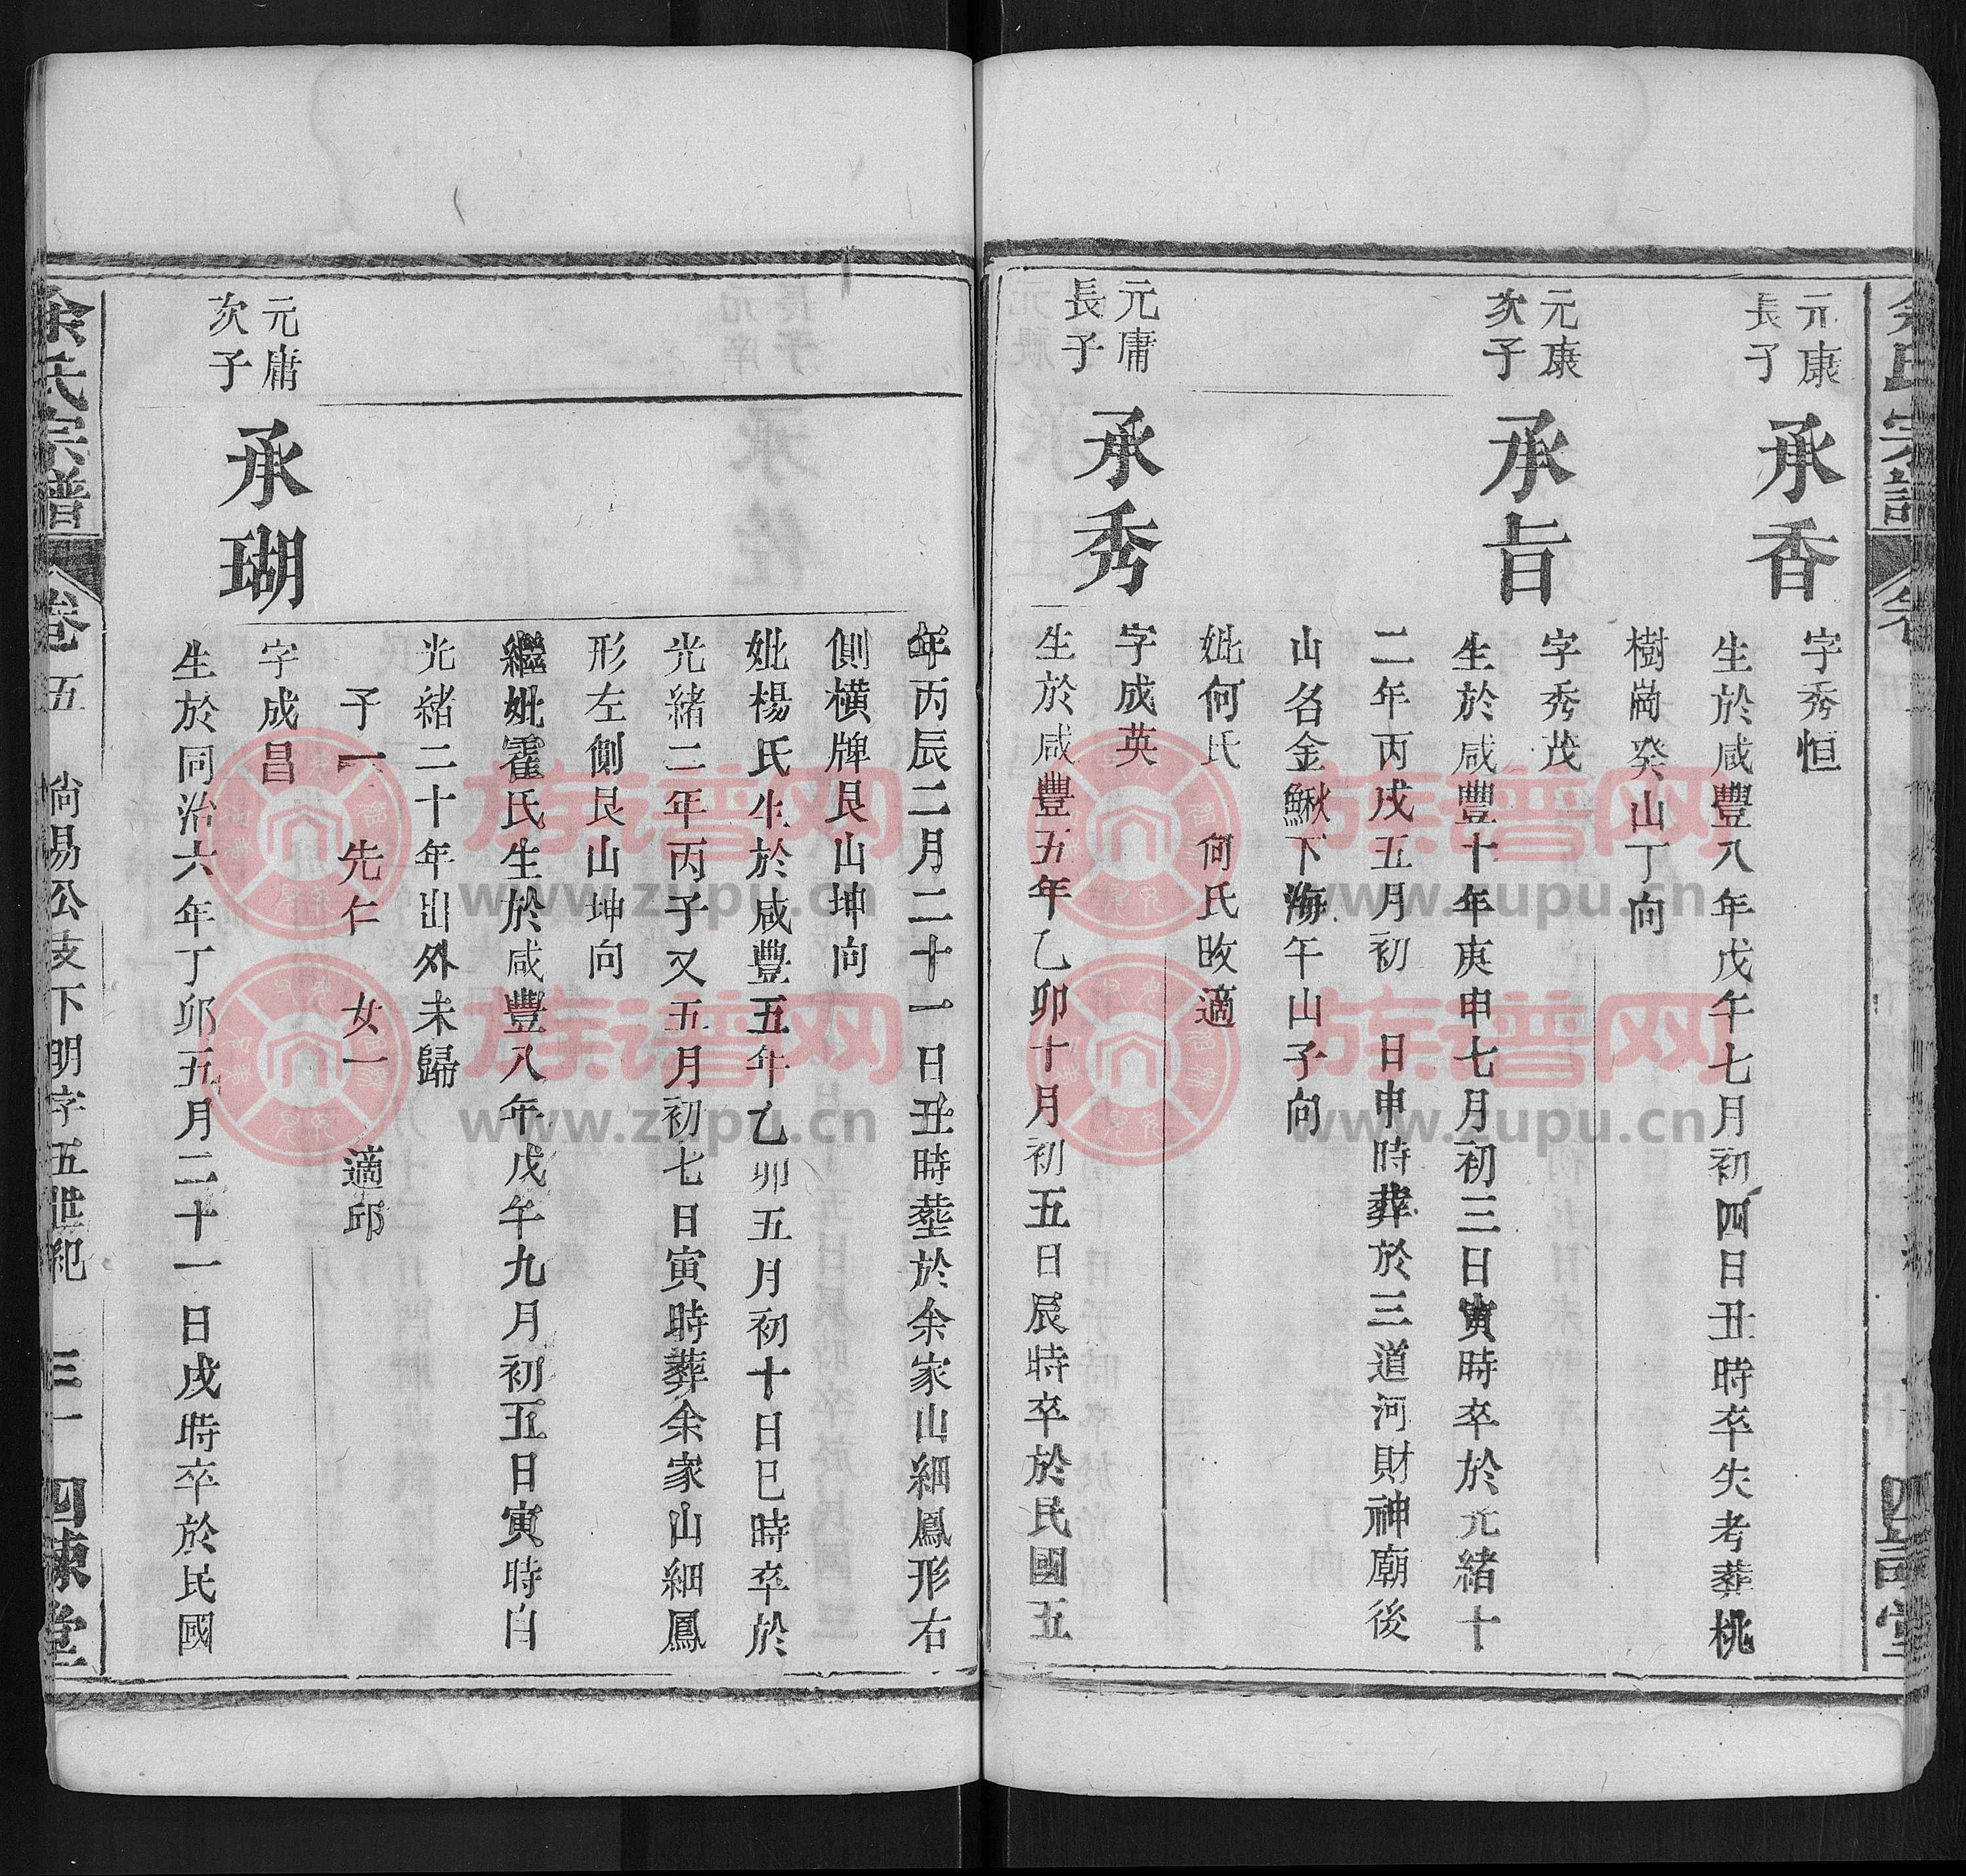 元康
長子
承香
字秀恒
生於咸豐八年戊午七月初四日丑時卒失考葬桃
樹崗癸山丁向
元康
次子
承旨
字秀茂
生於咸豐十年庚申七月初三日寅時卒於光緒十
二年丙戌五月初 日申時葬於三道河財神廟後
山名金鰍下海午山子向
妣何氏 何氏改適
元庸
長子
承秀
字成英
生於咸豐五年乙卯十月初五日辰時卒於民國五
年丙辰二月二十一日丑時塟於余家山細鳳形右
側横牌艮山坤向
妣楊氏生於咸豐五年乙卯五月初十日巳時卒於
光緒二年丙子又五月初七日寅時葬余家山細鳳
形左側艮山坤向
繼妣霍氏生於咸豐八年戊午九月初五日寅時自
光緒二十年出外未歸
子一 先仁 女一 適邱
元庸
次子
承瑚
字成昌
生於同治六年丁卯五月二十一日戌時卒於民國
余氏宗譜 卷五 尙易公支下明字五世紀 三十一 四諫堂
族谱网
www.zupu.cn
族谱网
www.zupu.cn
族谱网
www.zupu.cn
族谱网
www.zupu.cn